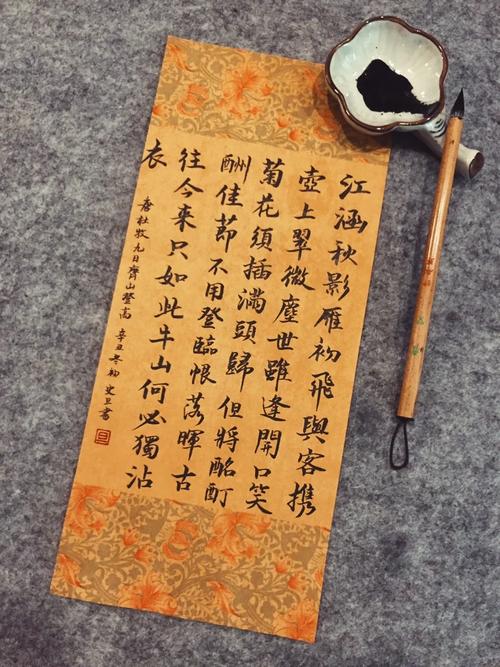 江涵秋影雁初飛與客携
壺上翠微塵世雖逢開口笑
菊花須插滿頭歸但將酩酊
酬佳節不用登臨恨落暉古
往今來只如此牛山何必獨沾
衣
唐杜牧九日齊山登高 辛丑冬初 史旦書
旦